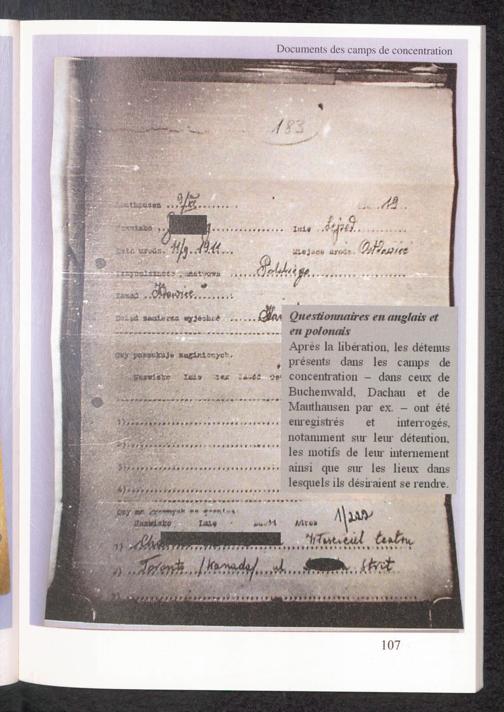 Documents des camps de concentration
183
Mauthausen 9/VI 19
Nazwisko Imię Sejed
Data urodz. 11/9 1911 Miejsce urodz.
Przynależność państwowa Polskiego
Zawód Krawiec
Dokąd zamierza wyjechać
Czy poszukuje zaginionych.
Nazwisko Imię
1)
2)
3)
4)
Czy ma zagranicą
Nazwisko Imię Adres
1) Właściciel teatru
2) Toronto /Kanada/ ul Strit
Questionnaires en anglais et
en polonais
Après la libération, les détenus
présents dans les camps de
concentration – dans ceux de
Buchenwald, Dachau et de
Mauthausen par ex. – ont été
enregistrés et interrogés,
notamment sur leur détention,
les motifs de leur internement
ainsi que sur les lieux dans
lesquels ils désiraient se rendre.
107